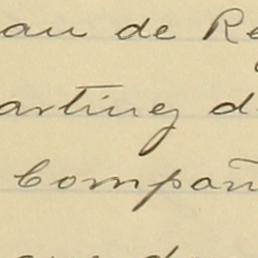 au de Re
artinez d
Compañ